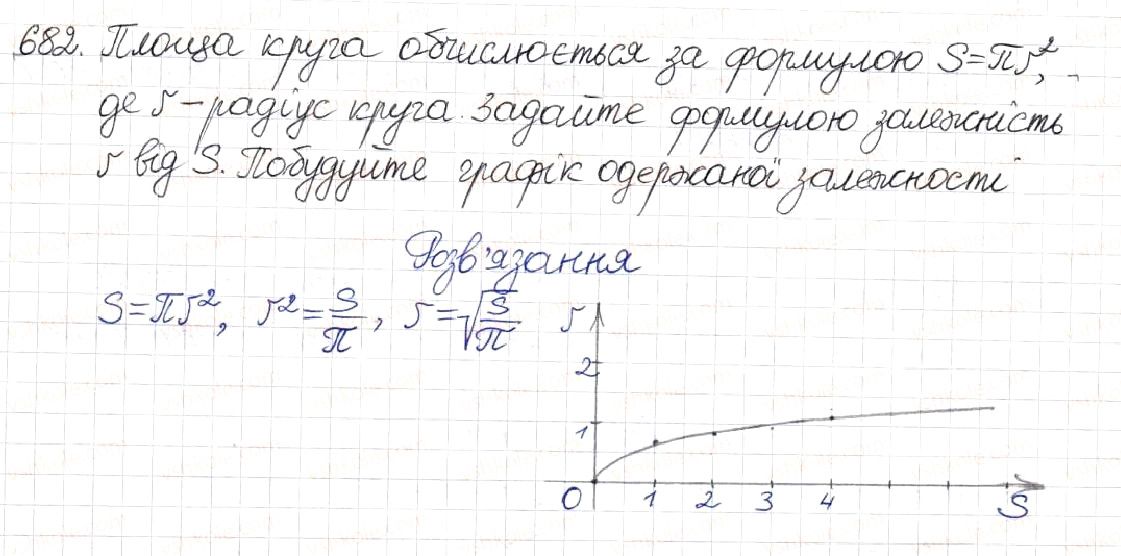 682. Площа круга обчислюється за формулою S=πr²,
де r – радіус круга. Задайте формулою залежність
r від S. Побудуйте графік одержаної залежності
Розв'язання
S=πr², r²=S/π, r=√(S/π)
r
2
1
0 1 2 3 4 S